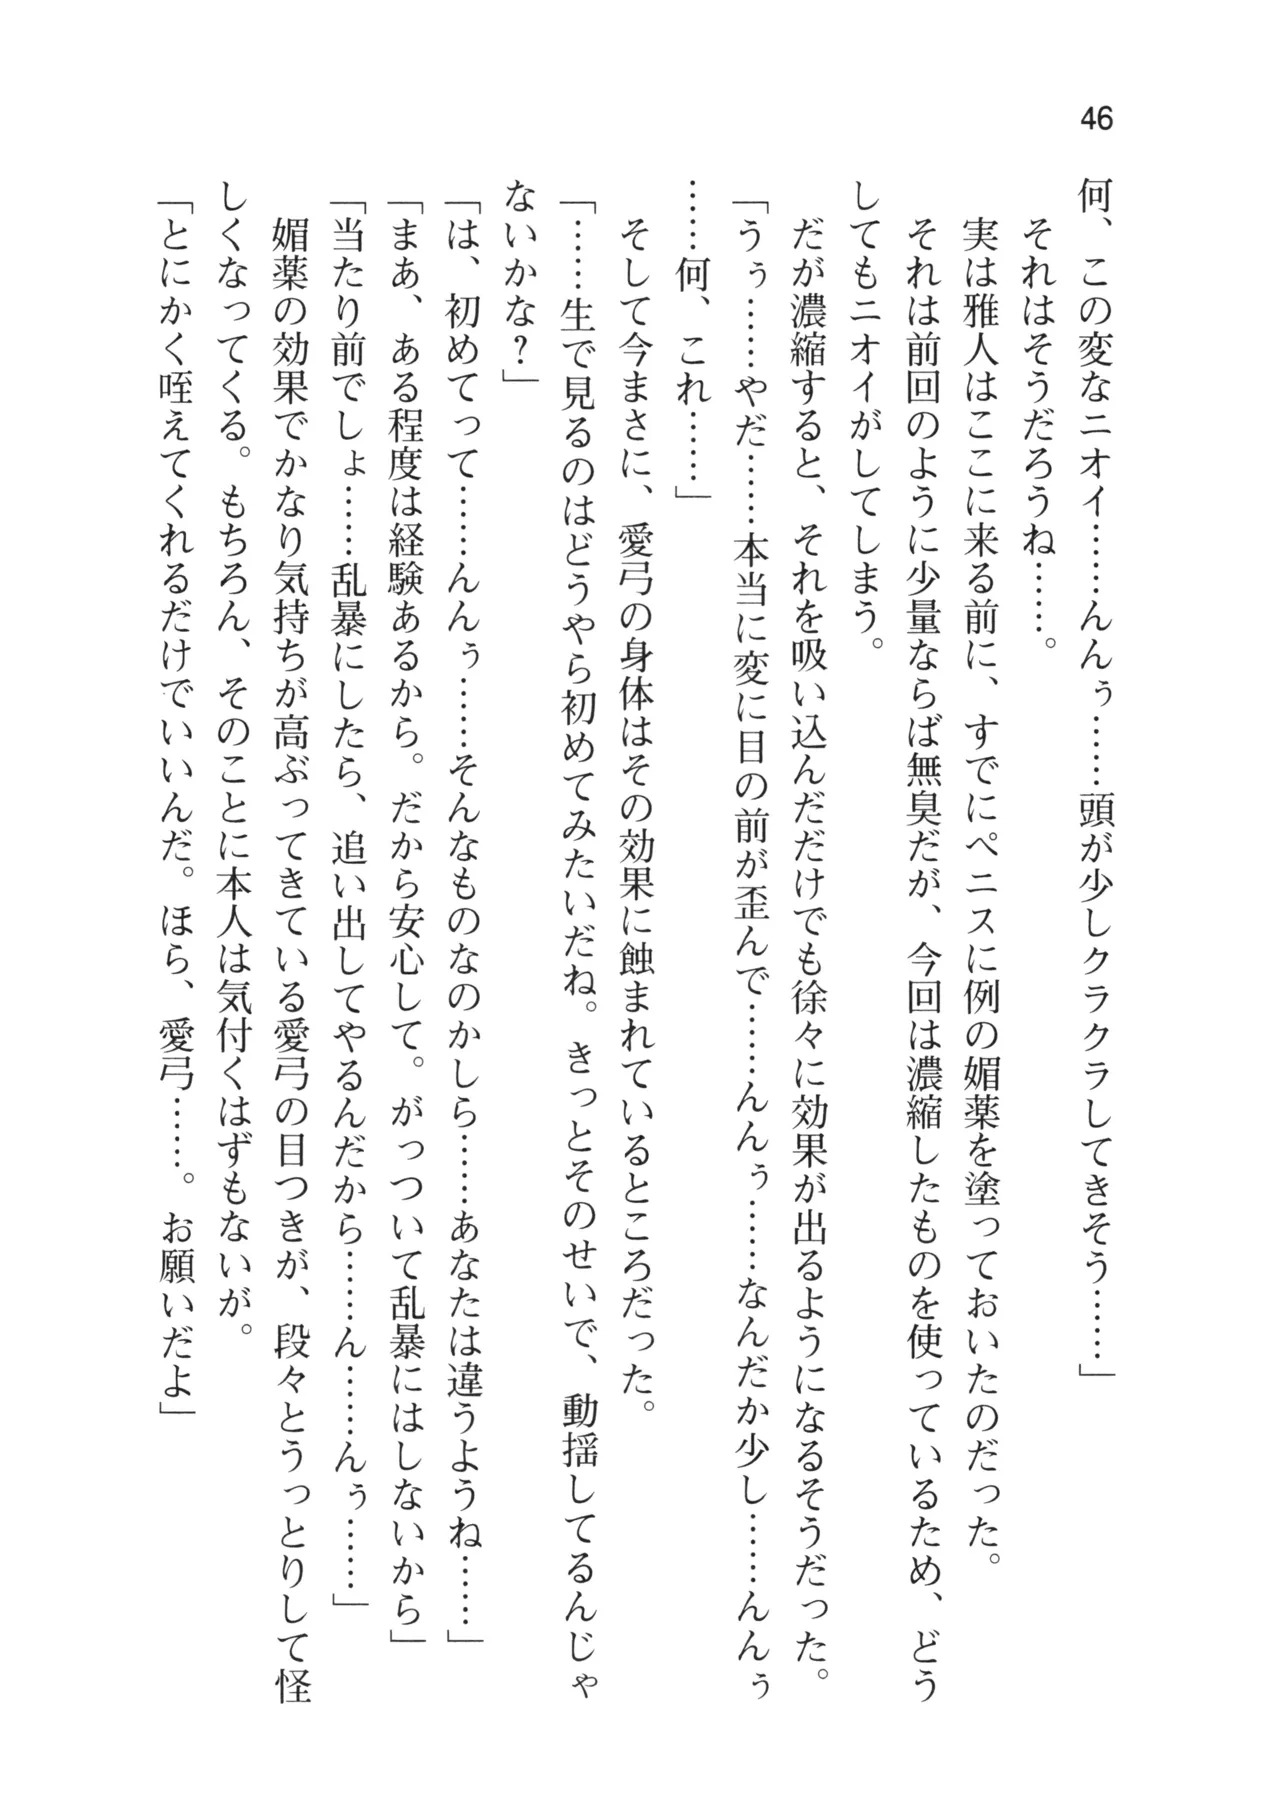 46
何、この変なニオイ……んんぅ……頭が少しクラクラしてきそう……」
それはそうだろうね……。
実は雅人はここに来る前に、すでにペニスに例の媚薬を塗っておいたのだった。
それは前回のように少量ならば無臭だが、今回は濃縮したものを使っているため、どう
してもニオイがしてしまう。
だが濃縮すると、それを吸い込んだだけでも徐々に効果が出るようになるそうだった。
「うぅ……やだ……本当に変に目の前が歪んで……んんぅ……なんだか少し……んんぅ
……何、これ……」
そして今まさに、愛弓の身体はその効果に蝕まれているところだった。
「……生で見るのはどうやら初めてみたいだね。きっとそのせいで、動揺してるんじゃ
ないかな?」
「は、初めてって……んんぅ……そんなものなのかしら……あなたは違うようね……」
「まあ、ある程度は経験あるから。だから安心して。がっついて乱暴にはしないから」
「当たり前でしょ……乱暴にしたら、追い出してやるんだから……ん……んぅ……」
媚薬の効果でかなり気持ちが高ぶってきている愛弓の目つきが、段々とうっとりして怪
しくなってくる。もちろん、そのことに本人は気付くはずもないが。
「とにかく咥えてくれるだけでいいんだ。ほら、愛弓……。お願いだよ」